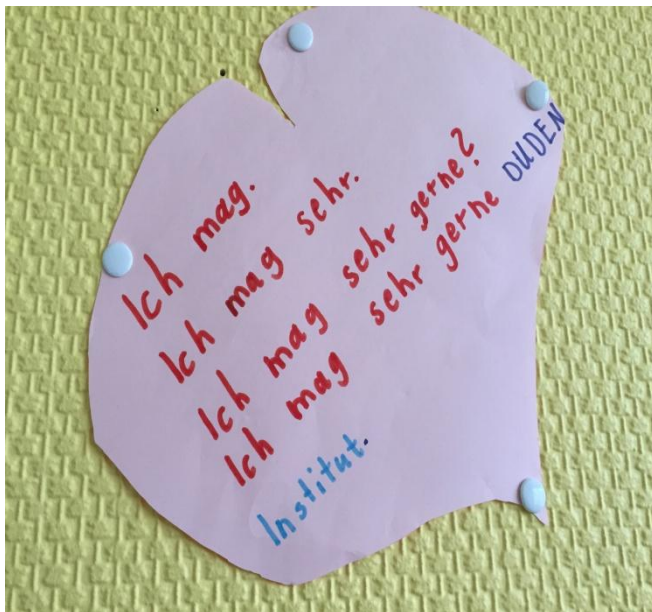 Ich mag.
Ich mag sehr.
Ich mag sehr gerne?
Ich mag sehr gerne DUDEN
Institut.